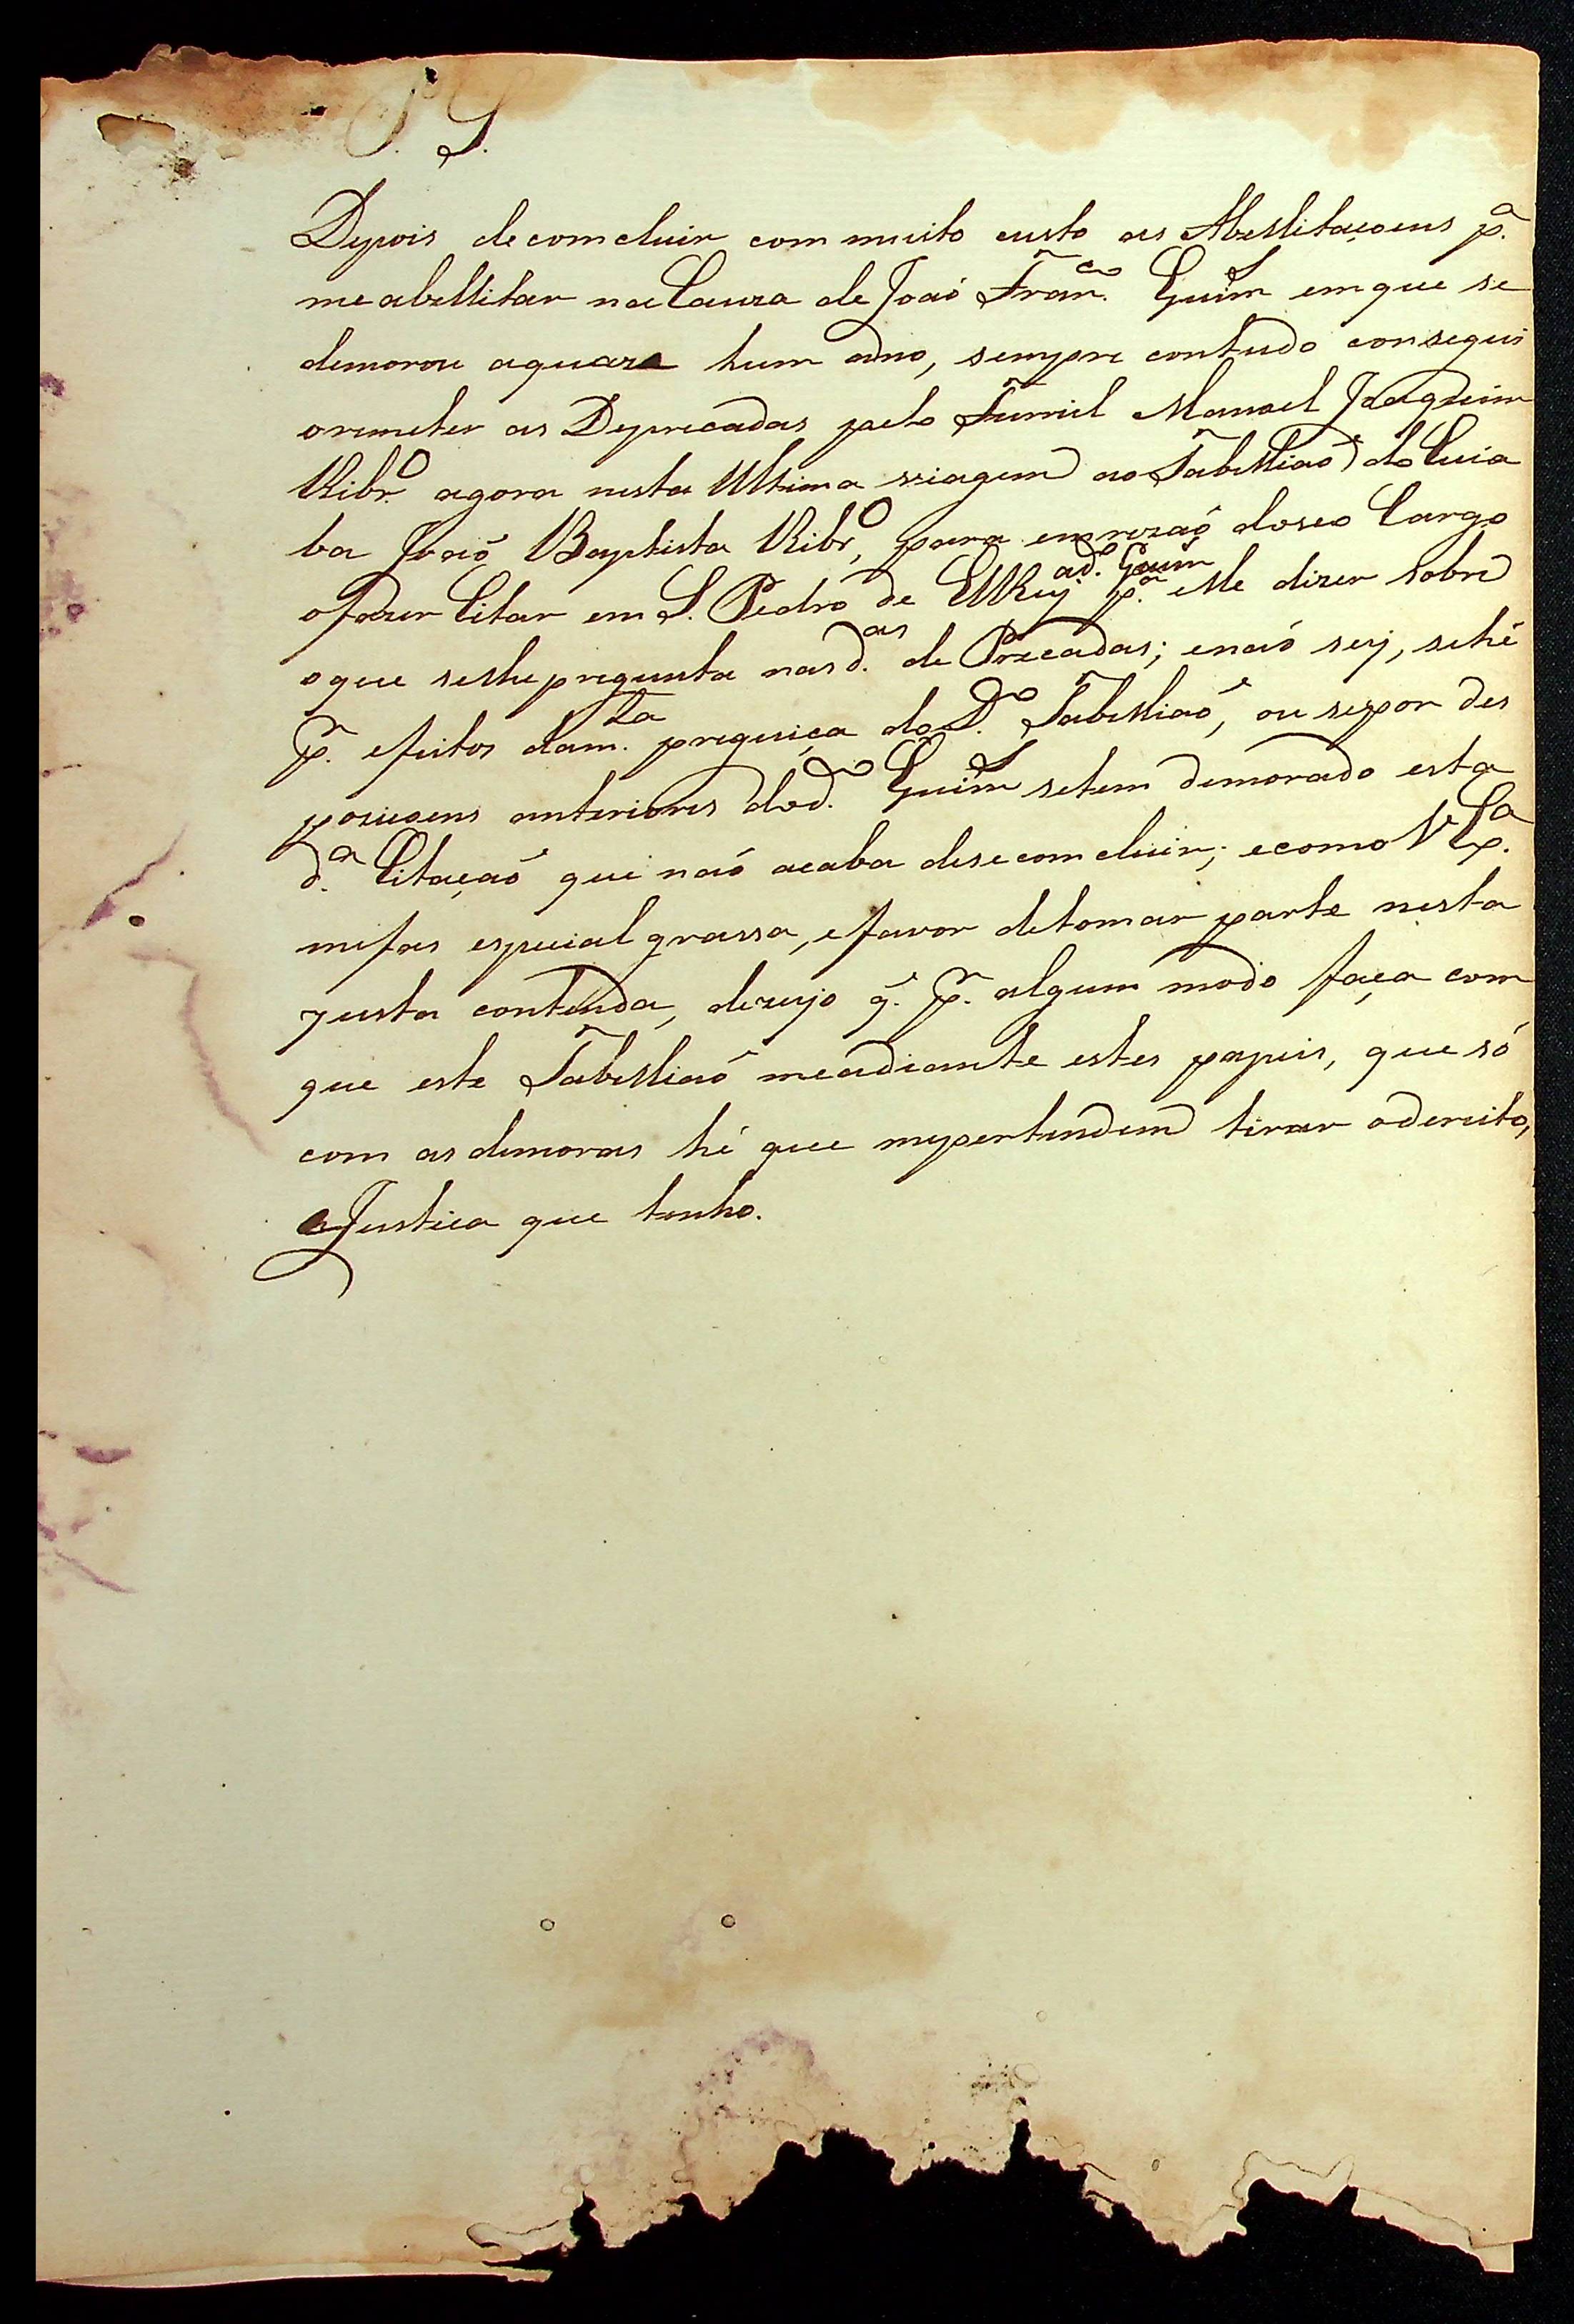 P. S.
Depois de comcluir com muito custo as Abellitaçoens p.ª
me abellitar na Cauza de Joaó Fran.co Guim.S em que se
demorou aquaze hum anno, sempre contudo consegui
oremeter as Deprecadas pelo Furriel Manoel Joaquim
Ribr.o agora nesta Ultima viagem ao Tabelliaó do Cuia
ba Joaó Baptista Ribr.o, para em rezaó doseo Cargo
ofazer Citar em S. Pedro de ElRey ad.o Guim p.ª elle dizer sobre
oque selhe pregunta nas d.as de Precadas; enaó sey, sehé
p.r efeitos dam.ta preguiça do D.o Tabelliaó, ou sepor des
poziçoens anteriores dod.o Guim.S setem demorado esta
d.a Citaçaó que naó acaba dese comcluir; ecomo V Ex.Ca
mefas especial grassa, efavor detomar parte nesta
justa contenda, dezejo q.e p.r algum modo faça com
que este Tabelliaó meadiante estes papeis, que só
com as demoras hé que mepertendem tirar odereito,
eJustiça que tenho.